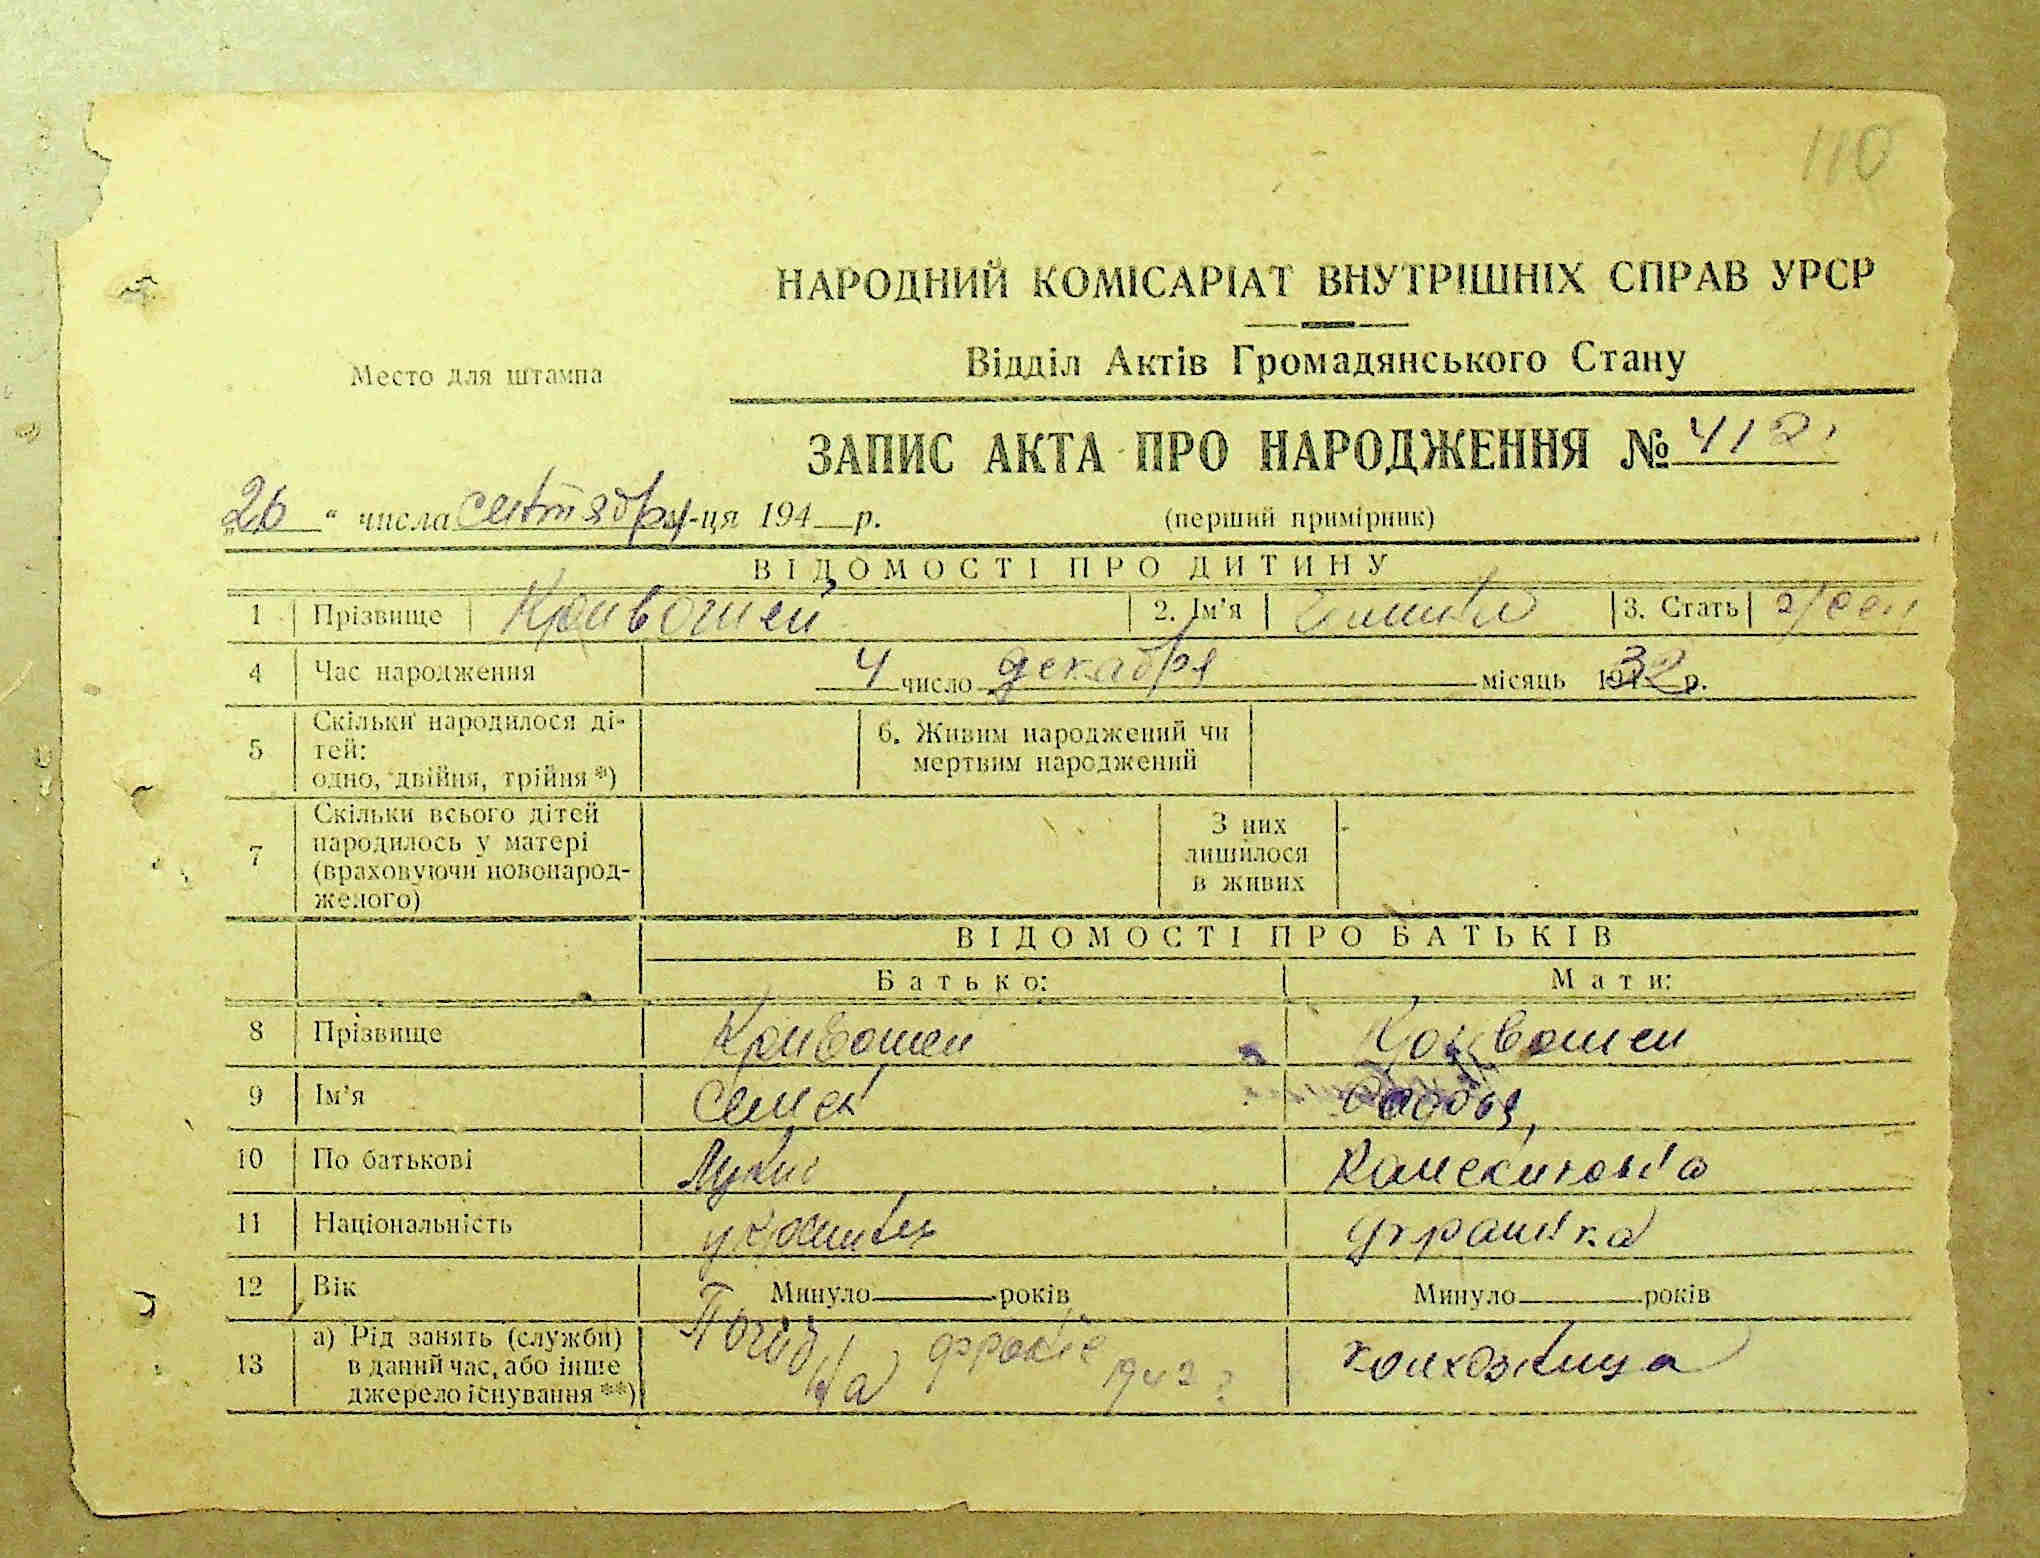 110
НАРОДНИЙ КОМІСАРІАТ ВНУТРІШНІХ СПРАВ УРСР
Место для штампа
Відділ Актів Громадянського Стану
ЗАПИС АКТА ПРО НАРОДЖЕННЯ № 412
„26“ числа сентября м-ця 194 р. (перший примірник)
ВІДОМОСТІ ПРО ДИТИНУ
1 Прізвище Кривошей 2. Ім'я 3. Стать
4 Час народження 4 число декабря місяць 32 р.
5 Скільки народилося ді-
тей:
одно, двійня, трійня *)
6. Живим народжений чи
мертвим народжений
7 Скільки всього дітей
народилось у матері
(враховуючи новонарод-
желого)
З них
лишилося
в живих
ВІДОМОСТІ ПРО БАТЬКІВ
Батько: Мати:
8 Прізвище Кривошей Кривошей
9 Ім'я Семен
10 По батькові
11 Національність
12 Вік Минуло років Минуло років
13 а) Рід занять (служби)
в даний час, або інше
джерело існування **)
на фронте 1942
колхозница